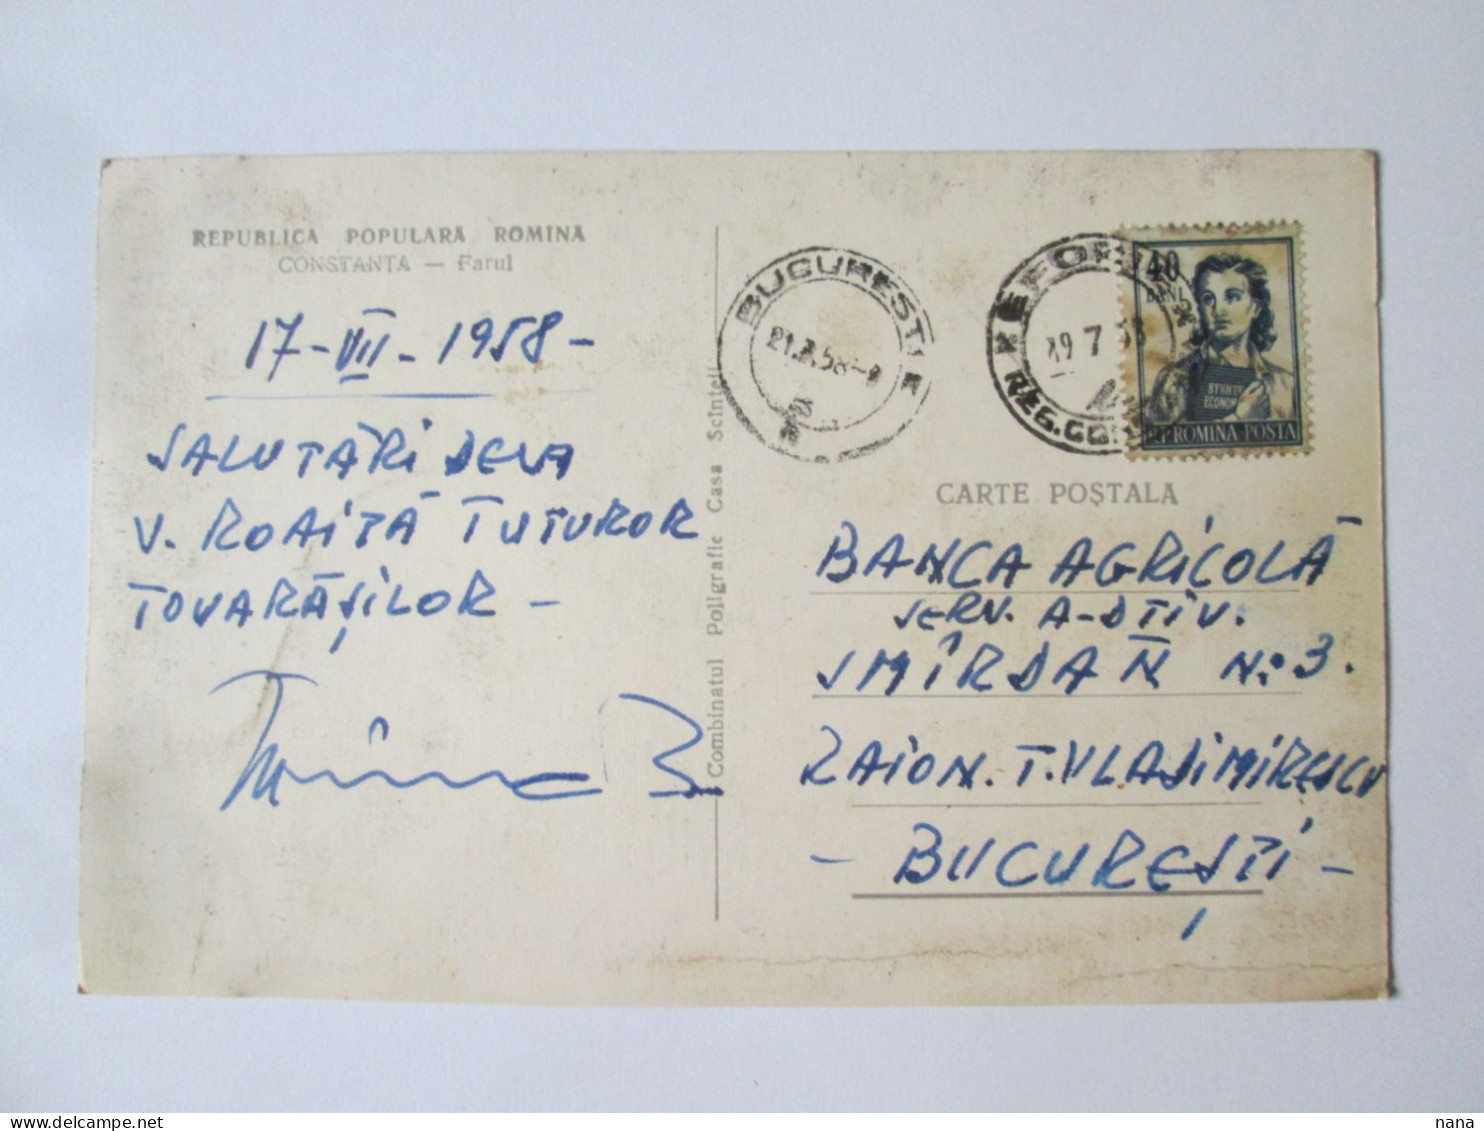 REPUBLICA POPULARĂ ROMÎNĂ
CONSTANȚA — Farul
17-VII-1958-
SALUTĂRI DELA
V. ROAITĂ TUTUROR
TOVARĂȘILOR -
Combinatul Poligrafic Casa Scînteii
BUCUREȘTI
21.7.58-
EFORI
19 7 58
REG. CON
40
BANI
STIINTE
ECONOM
RP ROMINA POSTA
CARTE POȘTALĂ
BANCA AGRICOLĂ
SERV. A-DTIV.
SMÎRDAN No 3.
RAION. T. VLADIMIRESCU
- BUCUREȘTI -
nana